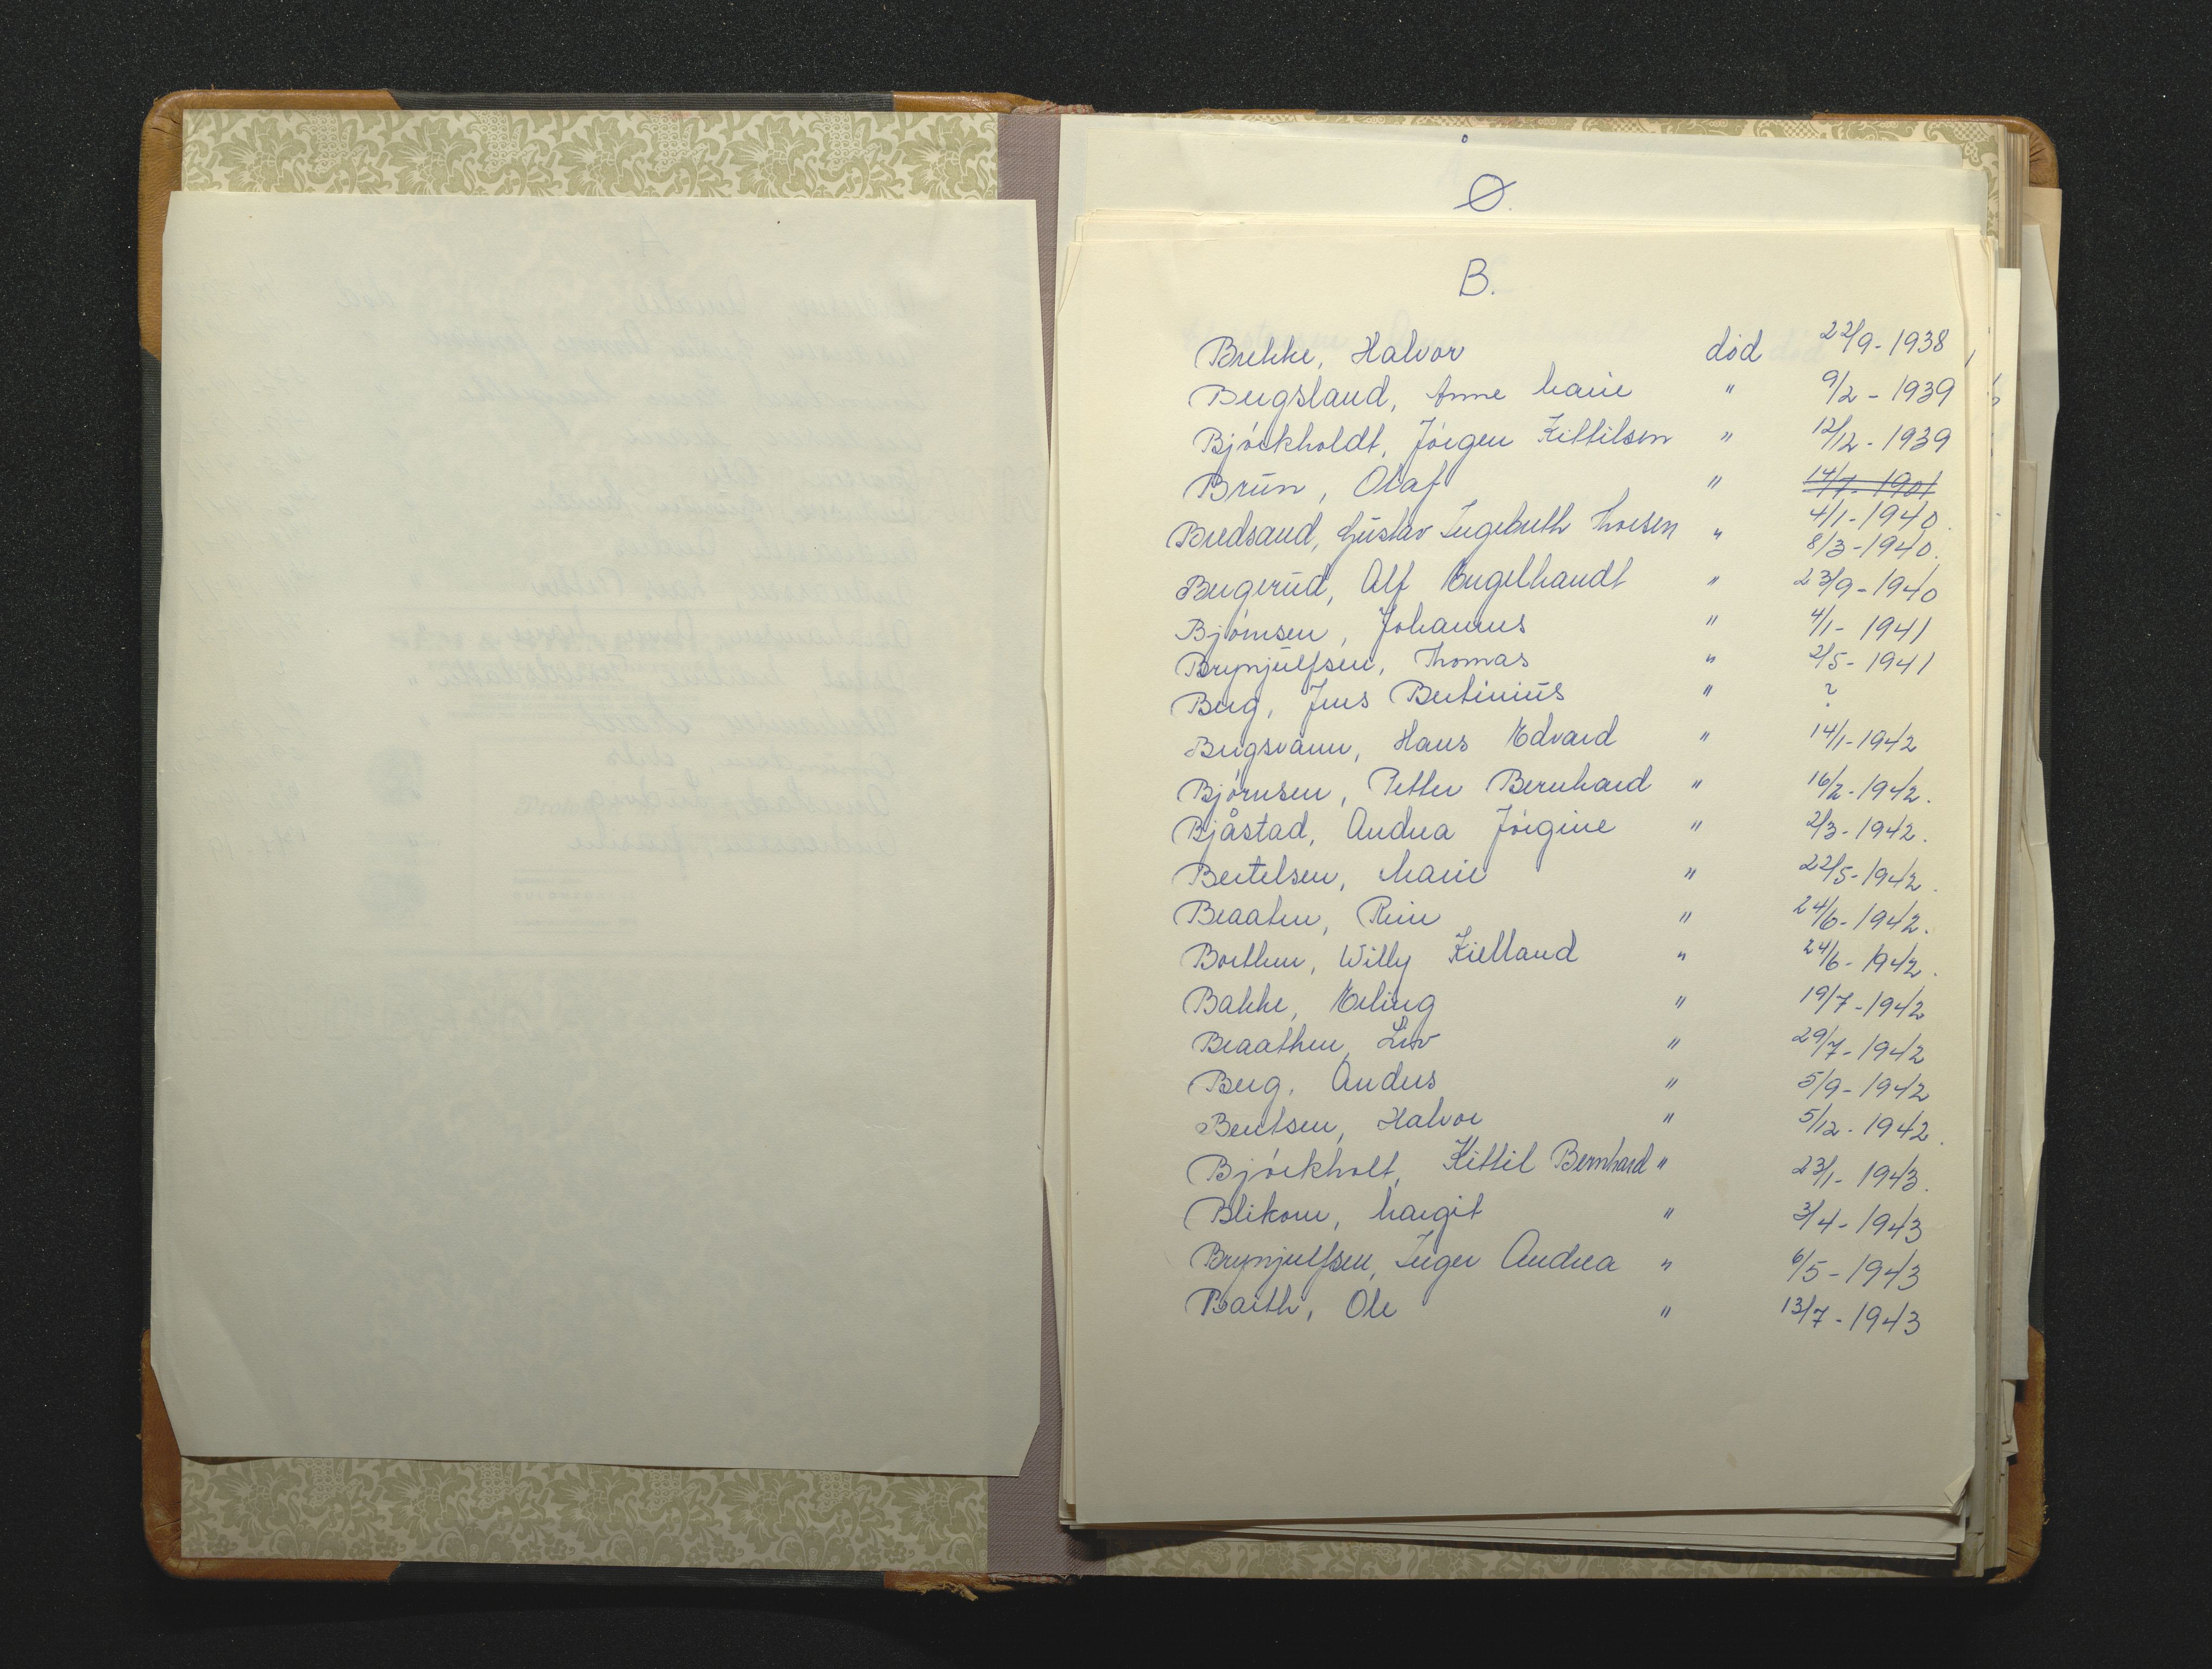 Ø.
B.
Brekke, Halvor død 22/9-1938
Bergsland, Anne Marie " 9/2-1939
Bjørkholdt, Jørgen Kittilsen " 12/12-1939
Brun, Olaf " 14/7-1901
4/1-1940.
Bredsand, Gustav Ingebreth Thorsen " 8/3-1940.
Bergerud, Alf Engelhardt " 23/9-1940
Bjørnsen, Johannes " 4/1-1941
Brynjulfsen, Thomas " 2/5-1941
Berg, Jens Bertinius " ?
Bergsvann, Hans Edvard " 14/1-1942
Bjørnsen, Petter Bernhard " 16/2-1942.
Bjåstad, Andrea Jørgine " 2/3-1942.
Bertelsen, Marie " 22/5-1942.
Braaten, " 24/6-1942.
Borthen, Willy Kielland " 24/6-1942.
Bakke, Erling " 19/7-1942
Braathen, Liv " 29/7-1942
Berg, Anders " 5/9-1942
Bentsen, Halvor " 5/12-1942.
Bjørkholt, Kittil Bernhard " 23/1-1943.
Blikom, Margit " 3/4-1943
Brynjulfsen, Inger Andrea " 6/5-1943
Barth, Ole " 13/7-1943